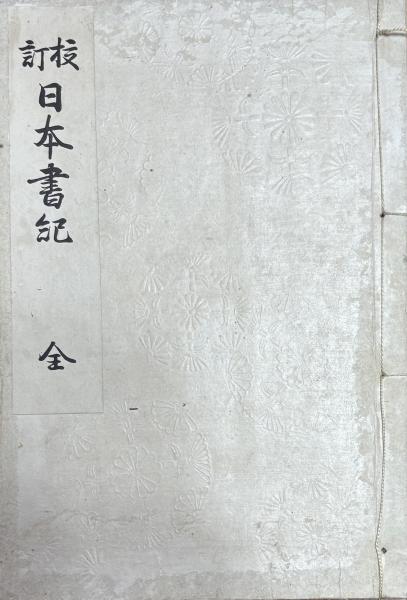 校訂
日本書紀
全